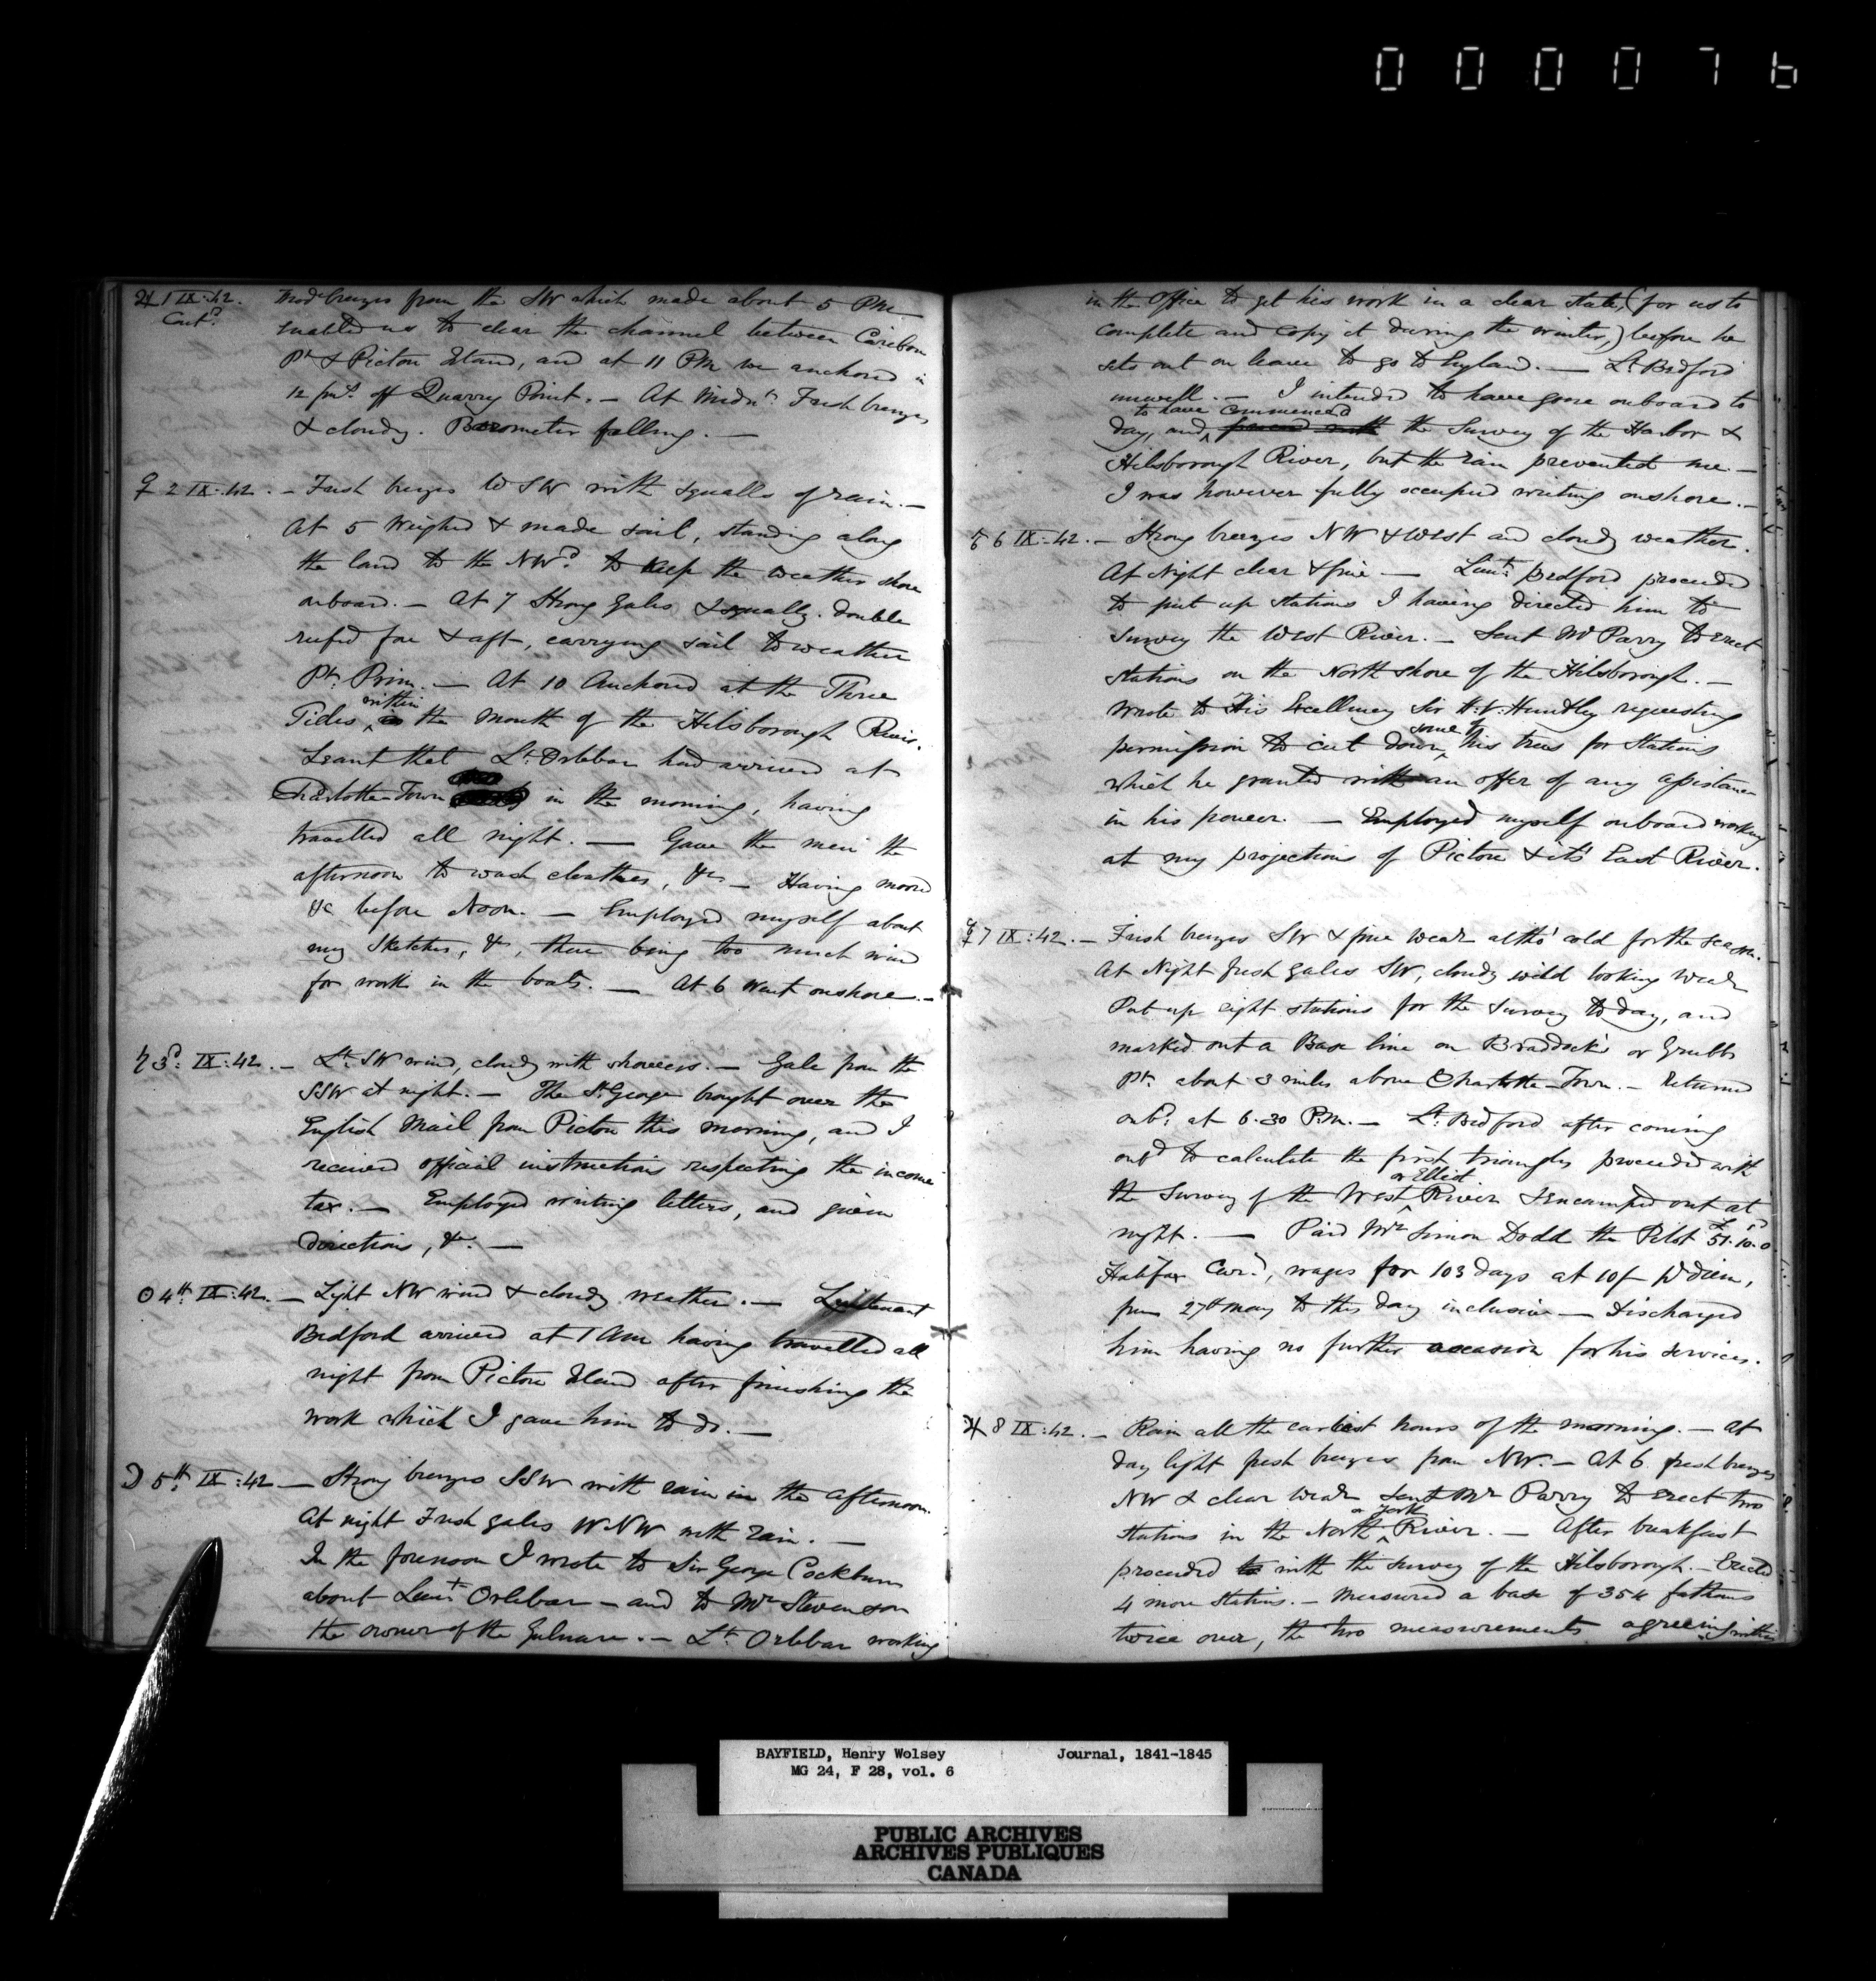 0 0 0 0 7 6
♃ 1 IX:42. Modᵉ breezes from the SW which made about 5 PM
Contᵈ. enabled us to clear the channel between Caribou
Pᵗ & Pictou Island, and at 11 PM we anchored in
12 fmˢ. off Quarry Point. – At Midnᵗ. Fresh breezes
& cloudy. Barometer falling. —
♀ 2 IX:42. – Fresh breezes WSW with squalls of rain. –
At 5 Weighed & made sail, standing along
the land to the NWᵈ. to keep the weather shore
onboard. – At 7 Strong Gales & squally. double
reefed fore & aft, carrying sail to weather
Pᵗ. Prim. – At 10 Anchored at the Three
within
Tides, ^ the mouth of the Hilsborough River.
Learnt that Lᵗ. Orlebar had arrived at
Charlotte-Town in the morning, having
travelled all night. — Gave the men the
afternoon to wash cloathes, &c – Having moored
&c before Noon. – Employed myself about
my Sketches, &c, there being too much wind
for work in the boats. — At 6 Went onshore. –
♄ 3ᵈ: IX:42. – Lᵗ. SW wind, cloudy with showers. – Gale from the
SSW at night. – The Sᵗ George brought over the
English Mail from Pictou this morning, and I
received official instructions respecting the income
tax. – Employed writing letters, and given
directions, &c. —
☉ 4ᵗʰ IX:42. – Light NW wind & cloudy weather. – Lieutenant
Bedford arrived at 1 AM having travelled all
night from Pictou Island after finishing the
work which I gave him to do. —
☽ 5ᵗʰ IX:42 — Strong breezes SSW with rain in the afternoon.
At night Fresh gales WNW with rain. —
In the forenoon I wrote to Sir George Cockburn
about Lieuᵗ Orlebar – and to Mʳ Stevenson
the owner of the Gulnare. – Lᵗ. Orlebar working
in the Office to get his work in a clear state, (for us to
complete and copy it during the winter,) before he
sets out on leave to go to England. — Lᵗ Bedford
unwell. – I intended to have gone onboard to
to have commenced
day, and ^ proceed with the Survey of the Harbor &
Hilsborough River, but the rain prevented me –
I was however fully occupied writing onshore. –
♂ 6 IX:42. – Strong breezes NW & West and cloudy weather.
At Night clear & fine — Lieuᵗ. Bedford proceeded
to put up stations I having directed him to
survey the West River. – Sent Mʳ Parry to erect
stations on the North shore of the Hilsborough. –
Wrote to His Excellency Sir H.V. Huntley requesting
some of
permission to cut down ^ his trees for Stations
which he granted with an offer of any assistance
in his power. – Employed myself onboard working
at my projections of Pictou & its East River.
☿ 7 IX:42. – Fresh breezes SW & fine Weaʳ altho' cold for the season.
At Night fresh gales SW, cloudy wild looking Weaʳ
Put up eight stations for the survey to day, and
marked out a Base line on Braddock's or Grubbs
Pᵗ. about 3 miles above Charlotte-Town. – Returned
onbᵈ. at 6.30 P.M. – Lᵗ. Bedford after coming
onbᵈ to calculate the first triangles proceeded with
or Elliot
the Survey of the West ^ River & encamped out at
night. — Paid Mʳ Simon Dodd the Pilot £51.10.0
Halifax Curʸ, wages for 103 days at 10/- ⅌ diem,
from 27ᵗʰ May to this day inclusive – Discharged
him having no further occasion for his services.
♃ 8 IX:42. – Rain all the earliest hours of the morning. – At
day light fresh breezes from NW. – At 6 fresh breezes
NW & clear Weaʳ sent Mʳ Parry to erect two
or York
stations in the North ^ River. – After breakfast
proceeded to with the survey of the Hilsborough. – Erected
4 more Stations. – Measured a base of 354 fathoms
twice over, the two measurements agreeing within
BAYFIELD, Henry Wolsey Journal, 1841-1845
MG 24, F 28, vol. 6
PUBLIC ARCHIVES
ARCHIVES PUBLIQUES
CANADA